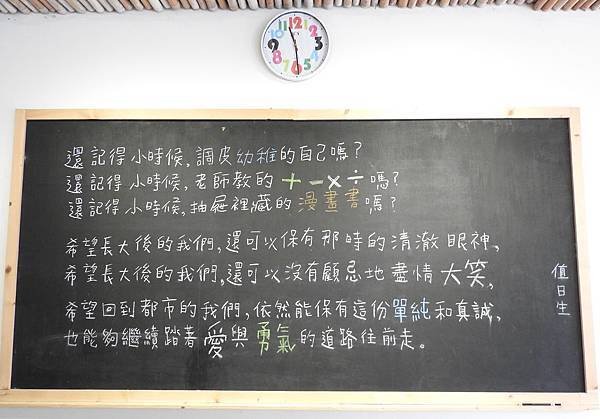 還記得小時候,調皮幼稚的自己嗎?
還記得小時候,老師教的+-×÷嗎?
還記得小時候,抽屜裡藏的漫畫書嗎?
希望長大後的我們,還可以保有那時的清澈眼神,
希望長大後的我們,還可以沒有顧忌地盡情大笑,
希望回到都市的我們,依然能保有這份單純和真誠,
也能夠繼續踏著愛與勇氣的道路往前走。
值日生
12
1
2
3
4
5
6
7
8
9
10
11